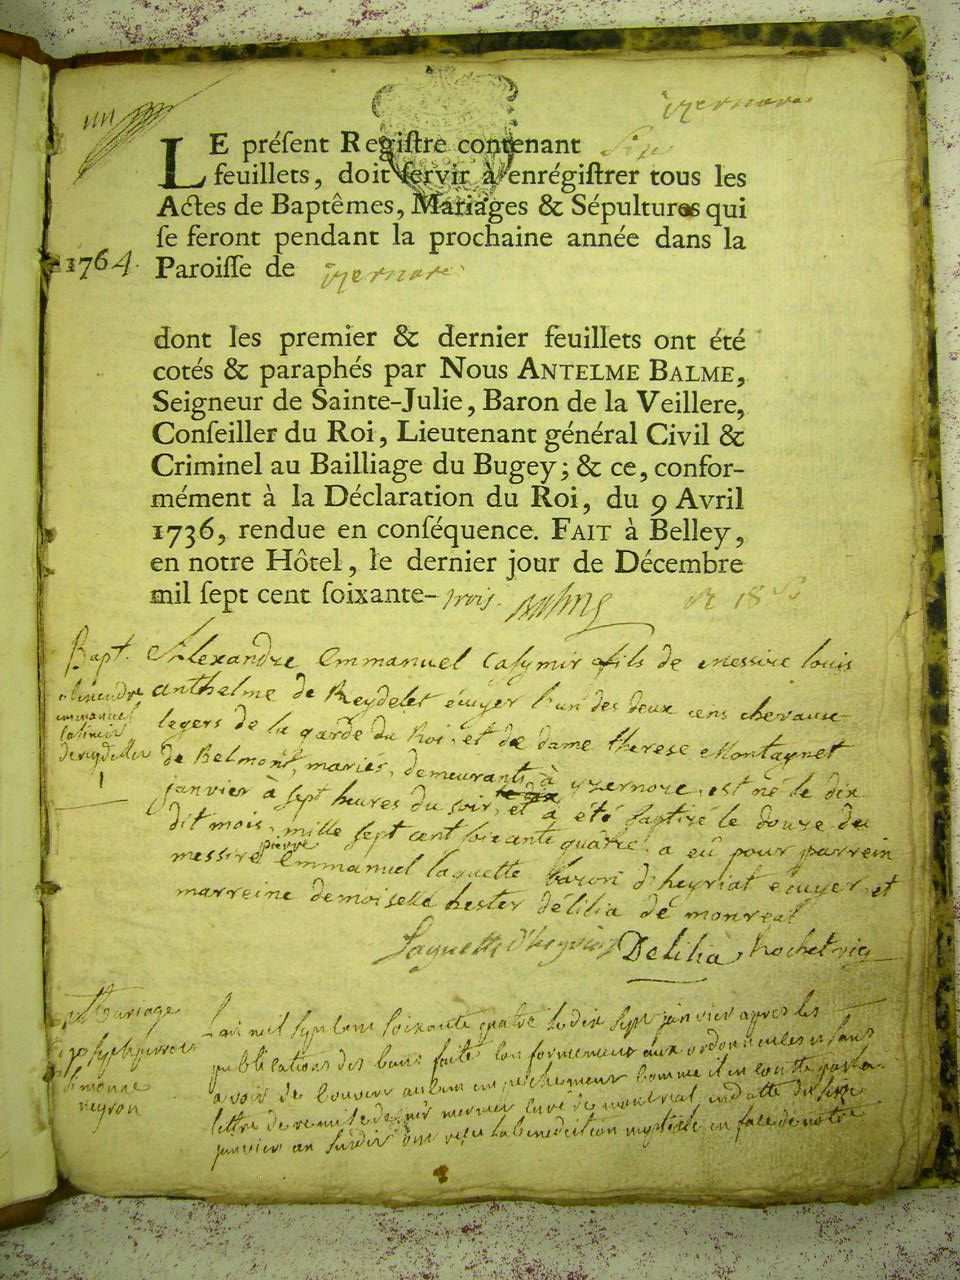 yzernore
un
LE préſent Regiſtre contenant Six
feuillets, doit ſervir à enrégiſtrer tous les
Actes de Baptêmes, Mariages & Sépultures qui
ſe feront pendant la prochaine année dans la
1764. Paroiſſe de yzernore
dont les premier & dernier feuillets ont été
cotés & paraphés par Nous ANTELME BALME,
Seigneur de Sainte-Julie, Baron de la Veillere,
Conſeiller du Roi, Lieutenant général Civil &
Criminel au Bailliage du Bugey; & ce, confor-
mément à la Déclaration du Roi, du 9 Avril
1736, rendue en conſéquence. FAIT à Belley,
en notre Hôtel, le dernier jour de Décembre
mil ſept cent ſoixante-trois. Balme
Bapt.
emmanuel
1
Alexandre Emmanuel Casymir fils de messire louis
anthelme de Reydelet écuyer l'un des deux cens chevaux
legers de la garde du Roi, et de dame therese Montagnet
de Belmont, mariés, demeurants à yzernore, est né le dix
janvier à sept heures du soir, et a été baptisé le douze du
dit mois, mille sept cent soixante quatre. a eû pour parrein
messire pierre Emmanuel laguette baron d'heyriat ecuyer, et
marreine demoiselle hester délilia de monreal
Laguette D'heyriat Delilia Rochet vic
Mariage
simonne
neyron
Lan mil sept cent soixante quatre le dix sept janvier apres les
publications des bans faites conformement aux ordonnances et sans
avoir decouvert aucun empechement comme il en conste par la
lettre de remise de mermet curé de montreal en datte du seize
janvier an susdit ont reçu la benediction nuptiale en face de notre